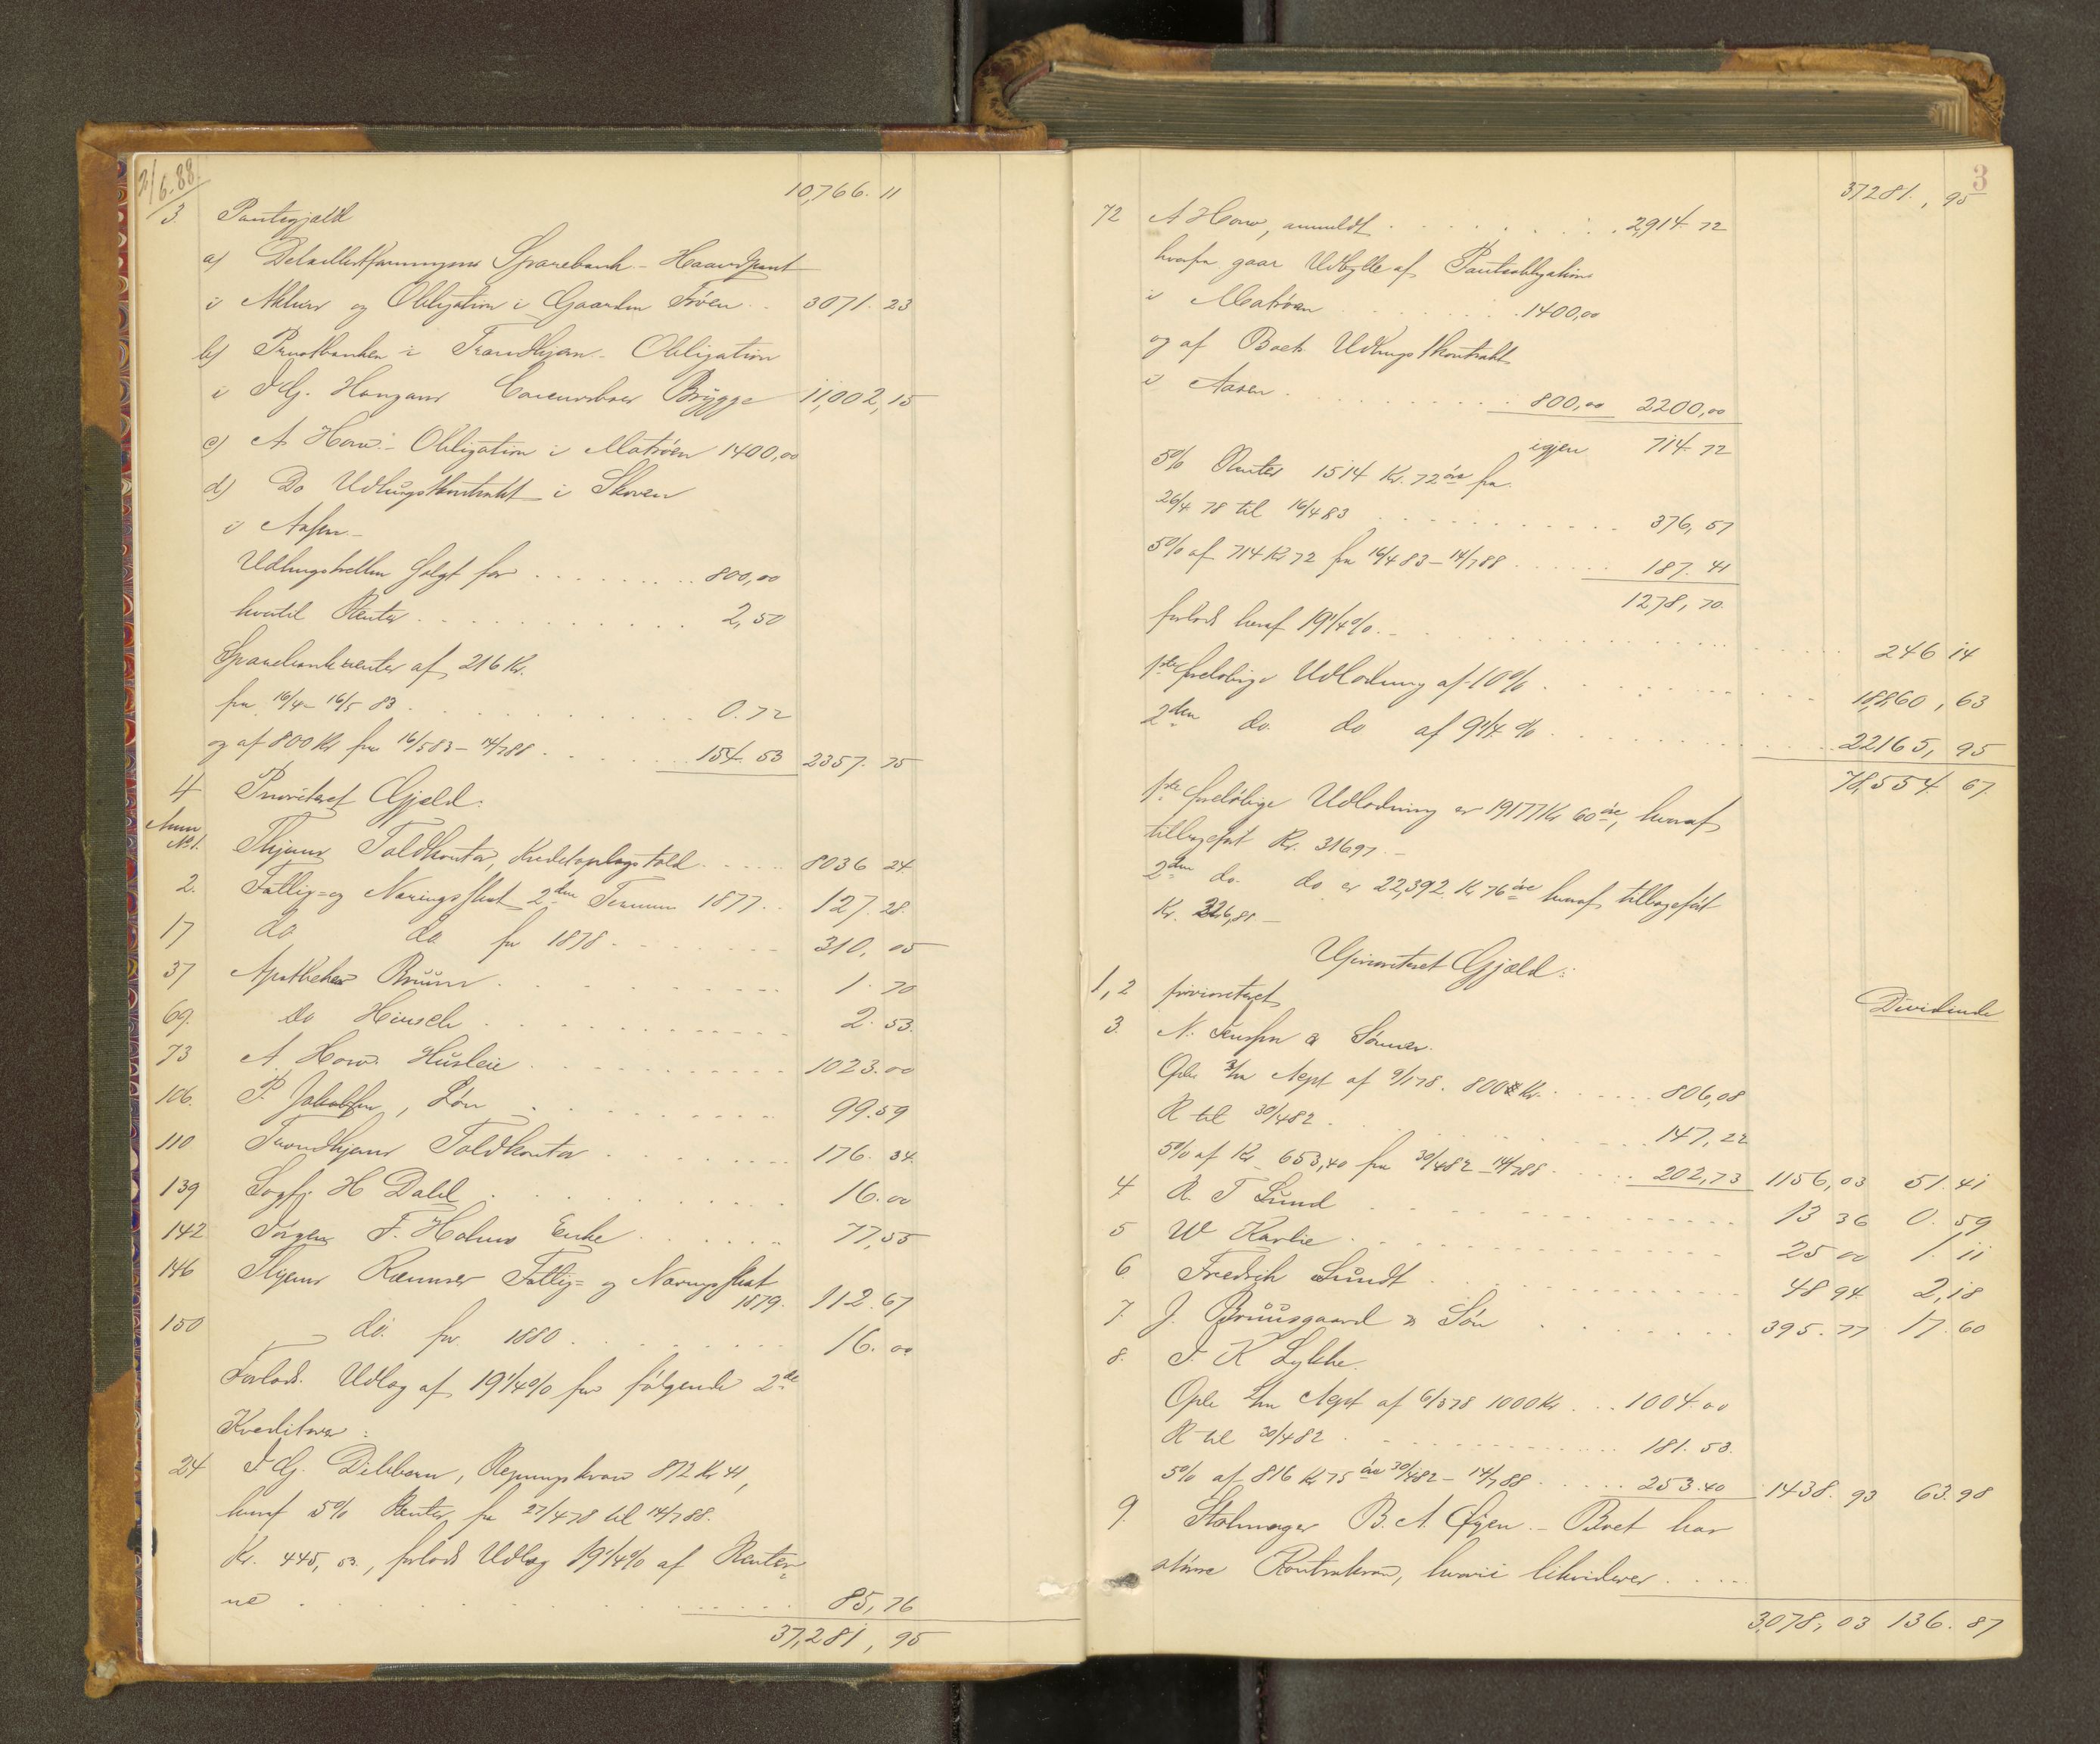 2/6.88
10,766. 11
3. Pantegjæld
a) Detaillistforeningens Sparebank – Haandpant
i Aktier og Obligation i Gaarden Fröen . . 3071. 23
b) Privatbanken i Trondhjem – Obligation
i I G. Brygge 11,002,15
c) A Horn – Obligation i Matröen 1400,00
d) Do Udhugstkontrakt i Skoven
i Aasen –
Udhugstretten solgt for . . . 800,00
hvortil Renter . . . 2,50
Sparebankrenter af 216 Kr.
fra 16/4 – 16/5 83 . . . 0.72
og af 800 Kr fra 16/5 83 – 14/7 88 . . . 154. 53 2357. 75
4 Prioriteret Gjæld.
Anm
No 1. Thjems Toldkontor, Kreditoplagstold . . . 8036 24.
2. Fattig- og Næringsskat 2den Termin 1877 . . 127. 28.
17 do do for 1878 . . . 310, 05
37 Apotheker Bruun . . . 1. 70
69. do Hirsch . . . 2. 53.
73 A. Horn Husleie . . . 1023.00
106. P. Jakobsen, Lön . . . 99.59
110 Trondhjems Toldkontor . . . 176. 34.
139 Sagf. H Dahl . . . 16.00
142 Jörgen F. Holms Enke . . . 77,55
146 Thjems Kæmner Fattig- og Næringsskat
1879. 112.67
150 – do. for 1880 . . . 16. 00
Forlods Udlæg af 19 1/4 % for fölgende 2de
Kreditorer :
24 I G. , Regningskrav 872 Kr 41,
heraf 5% Renter fra 27/4 78 til 14/7 88.
Kr. 445, 53., forlods Udlæg 19 1/4 % af Renter-
ne . . . 85,76
37,281, 95
3
37281., 95
72 A Horn, anmeldt . . . 2,914. 72
hvorfra gaar Udbytte af Pantobligation
i Matröen . . . 1400,00
og af Boets Udhugstkontrakt
i Aasen . . . 800,00 2200,00
igjen 714. 72
5% Renter 1514 Kr. 72 öre fra
26/4 78 til 16/4 83 . . . 376, 57
5% af 714 Kr 72 fra 16/4 83 – 14/7 88 . . . 187. 41
1278, 70.
forlods heraf 19 1/4 %. – . . . 246 14
1ste forelöbige Udlodning af 10% . . . 18,860, 63
2den do. do af 9 1/4 % . . . 22165, 95
78,554. 67.
1ste forelöbige Udlodning er 19177 Kr 60 öre, hvoraf
tilbageført Kr. 316,97. –
2den do. do er 22,392 Kr 76 öre hvoraf tilbageført
Kr. 226,81 –
Uprioriteret Gjæld :
1, 2 prioriteret
Dividende
3. N. Jensen & Sönner.
Opl. 3/m Acpt af 9/1 78. 800 Kr. . . . 806,08
R til 30/4 82 . . . 147, 22
5% af Kr 653,40 fra 30/4 82 – 14/7 88 . . . 202,73 1156, 03 51. 41
4 R. T Lund . . . 13 36 0. 59
5 W Karlie . . . 25 00 1. 11
6 Fredrik Lundt . . . 48 94. 2,18
7. J. Bruusgaard & Sön . . . 395. 77 17. 60
8. I. K Lykke.
Opl. 2/m Acpt af 6/3 78 1000 Kr . . . 1004.00
R til 30/4 82 . . . 181. 53.
5% af 816 Kr 75 öre 30/4 82 – 14/7 88 . . . 253.40 1438. 93 63. 98
9. Stolmager B. A. Öyen. – Boet har
större Kontrakrav, hvori likviderer . . .
3,078, 03 136. 87